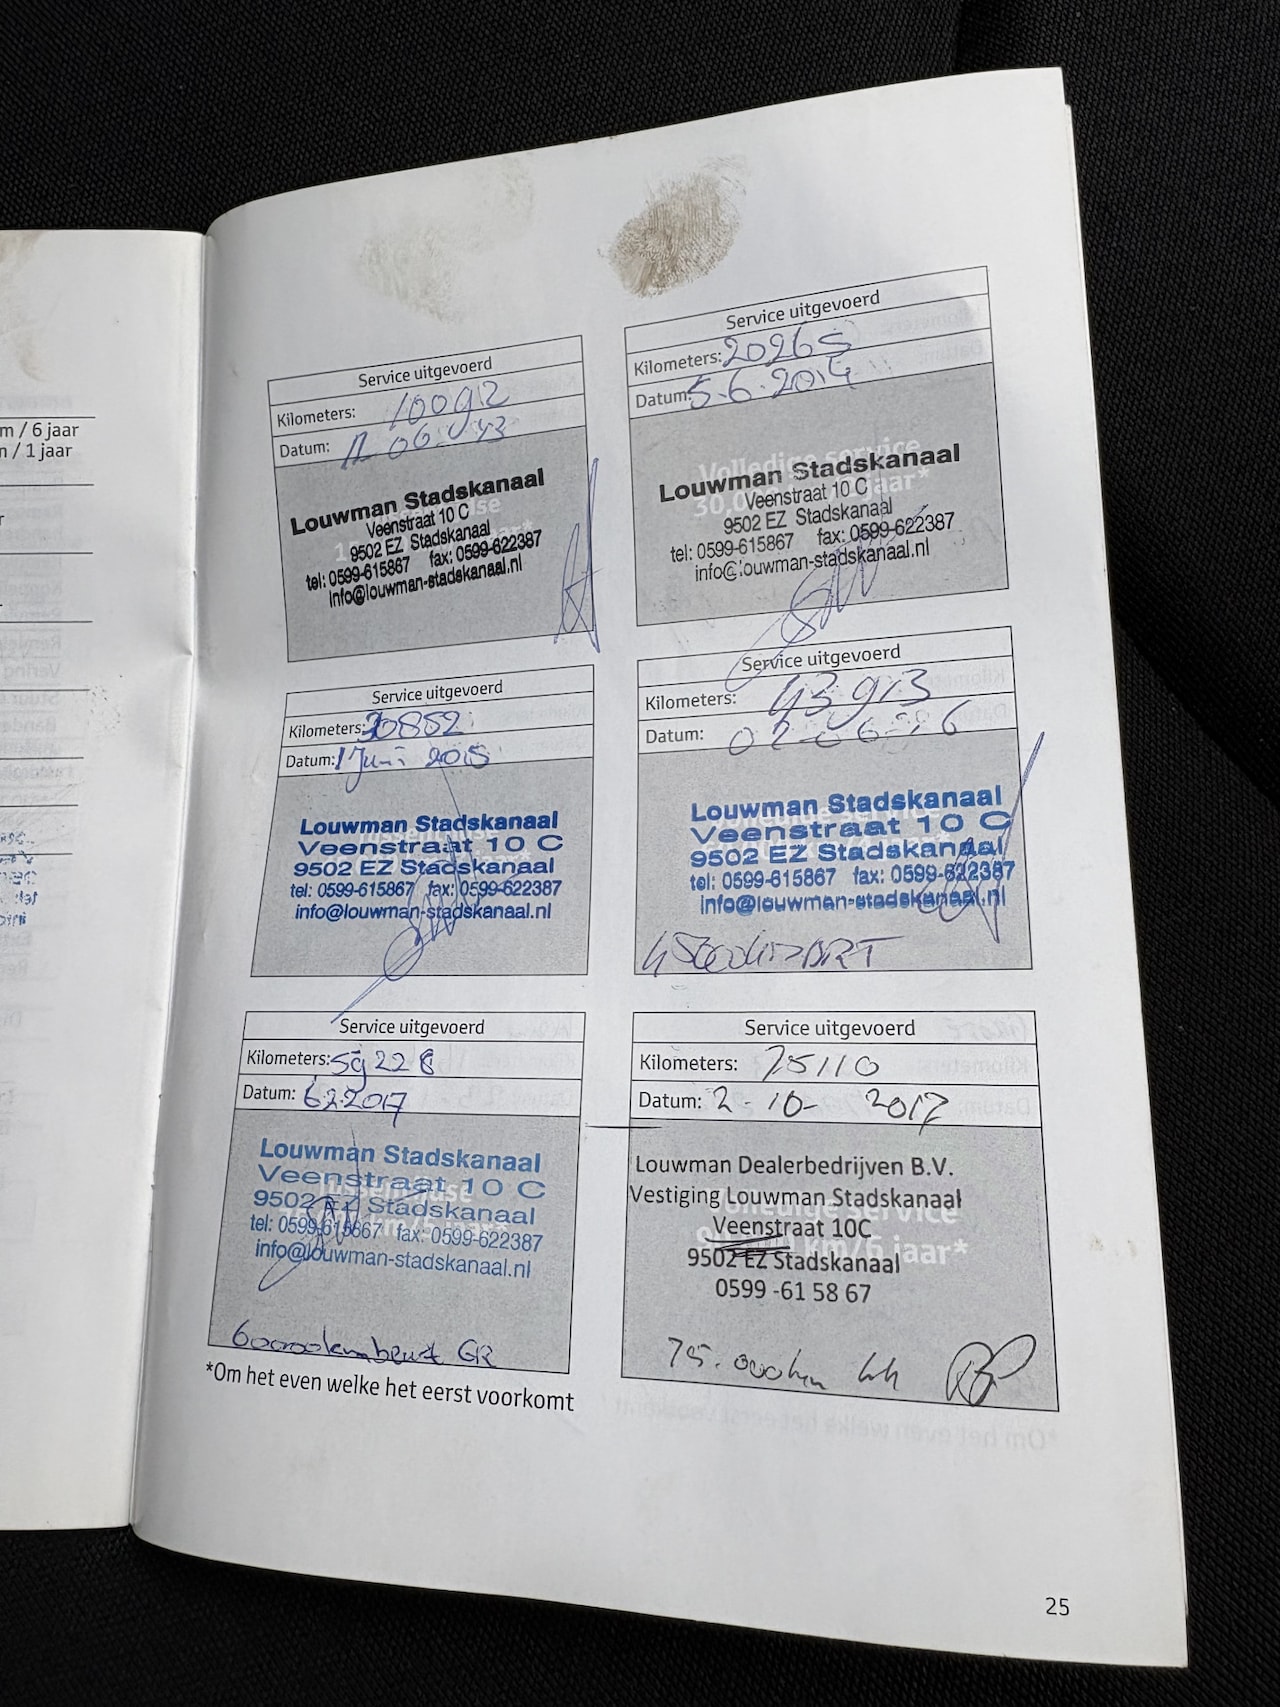 m / 6 jaar
n / 1 jaar
Service uitgevoerd
Kilometers: 10092
Datum: 12 06
Louwman Stadskanaal
Veenstraat 10 C
9502 EZ Stadskanaal
tel: 0599-615867 fax: 0599-622387
info@louwman-stadskanaal.nl
Service uitgevoerd
Kilometers: 20265
Datum: 5.6.2014
Volledige service
Louwman Stadskanaal
Veenstraat 10 C
9502 EZ Stadskanaal
tel: 0599-615867 fax: 0599-622387
info@louwman-stadskanaal.nl
Service uitgevoerd
Kilometers: 30852
Datum: 1 Juni 2015
Louwman Stadskanaal
Veenstraat 10 C
9502 EZ Stadskanaal
tel: 0599-615867 fax: 0599-622387
info@louwman-stadskanaal.nl
Service uitgevoerd
Kilometers: 43913
Datum: 02-06-16
Louwman Stadskanaal
Veenstraat 10 C
9502 EZ Stadskanaal
tel: 0599-615867 fax: 0599-622387
info@louwman-stadskanaal.nl
Service uitgevoerd
Kilometers: 59228
Datum: 6.2.2017
Louwman Stadskanaal
Veenstraat 10 C
9502 EZ Stadskanaal
tel: 0599-615867 fax: 0599-622387
info@louwman-stadskanaal.nl
60000km beurt GR
Service uitgevoerd
Kilometers: 75110
Datum: 2-10-2017
Louwman Dealerbedrijven B.V.
Vestiging Louwman Stadskanaal
Volledige service
Veenstraat 10C
km/6 jaar*
9502 EZ Stadskanaal
0599 -61 58 67
75.000km
*Om het even welke het eerst voorkomt
25